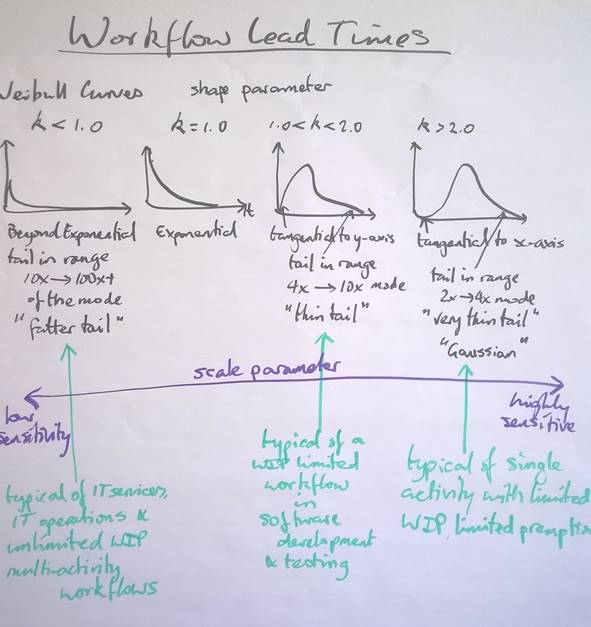 Workflow Lead Times
Weibull Curves shape parameter
k < 1.0 k = 1.0 1.0 < k < 2.0 k > 2.0
t
Beyond Exponential
tail in range
10x → 100x+
of the mode
"fatter tail"
Exponential
tangential to y-axis
tail in range
4x → 10x mode
"thin tail"
tangential to x-axis
tail in range
2x → 4x mode
"very thin tail"
"Gaussian"
scale parameter
low
sensitivity
highly
sensitive
typical of IT services,
IT operations &
unlimited WIP
multi-activity
workflows
typical of a
WIP limited
workflow
in
software
development
& testing
typical of single
activity with limited
WIP, limited